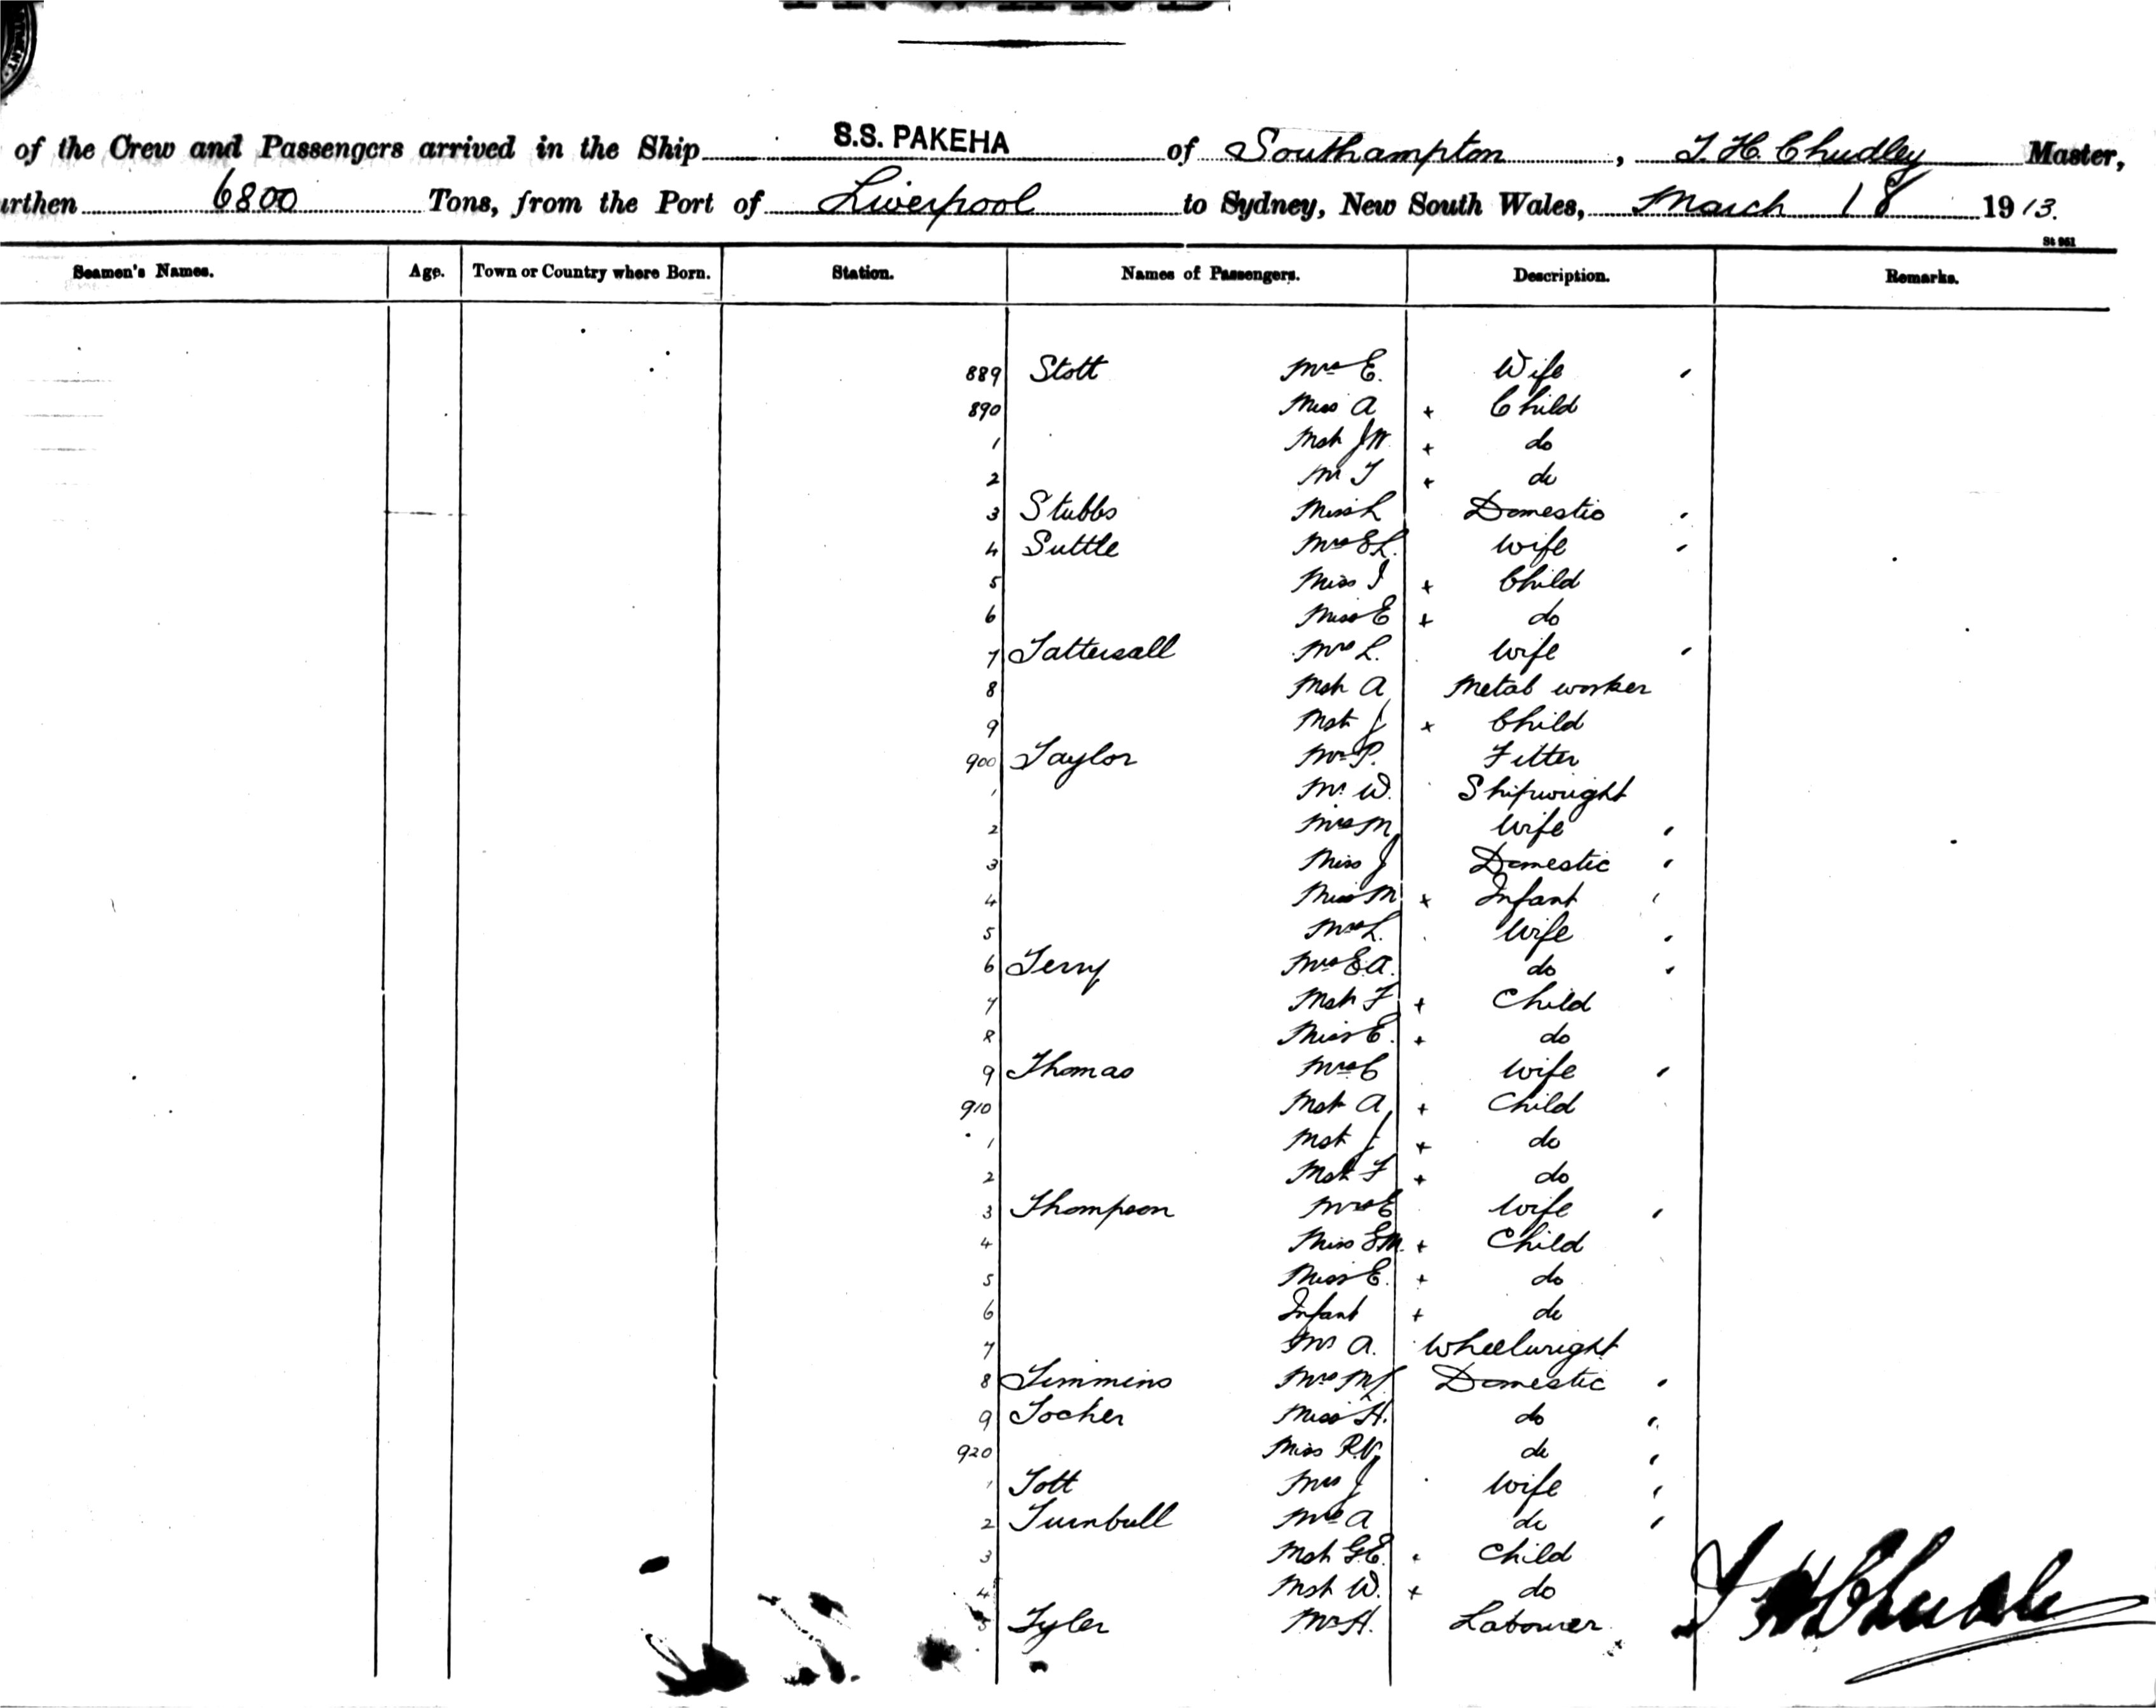 of the Crew and Passengers arrived in the Ship S.S. PAKEHA of Southampton, T. H. Chudley Master,
urthen 6800 Tons, from the Port of Liverpool to Sydney, New South Wales, March 18 1913.
St 961
Seamen's Names. Age. Town or Country where Born. Station. Names of Passengers. Description. Remarks.
889 Stott Mrs E. Wife
890 Miss A + Child
1 Mstr J W. + do
2 Mr T + do
3 Stubbs Miss L Domestic
4 Suttle Mrs E L. Wife
5 Miss I + Child
6 Miss E + do
7 Tattersall Mrs L. Wife
8 Mstr A Metal worker
9 Mstr J + Child
900 Taylor Mr P. Fitter
1 Mr W. Shipwright
2 Mrs M Wife
3 Miss J Domestic
4 Miss M + Infant
5 Mrs L. Wife
6 Terry Mrs E.A. do
7 Mstr F + Child
8 Miss E. + do
9 Thomas Mrs C Wife
910 Mstr A + Child
1 Mstr J + do
2 Mstr F + do
3 Thompson Mrs E Wife
4 Miss E M. + Child
5 Miss E. + do
6 Infant + do
7 Mr A. Wheelwright
8 Timmins Mrs M L Domestic
9 Tocher Miss H. do
920 Miss R.V. do
1 Tott Mrs J Wife
2 Turnbull Mrs A do
3 Mstr G.E. + Child
4 Mstr W. + do
5 Tyler Mr H. Labourer